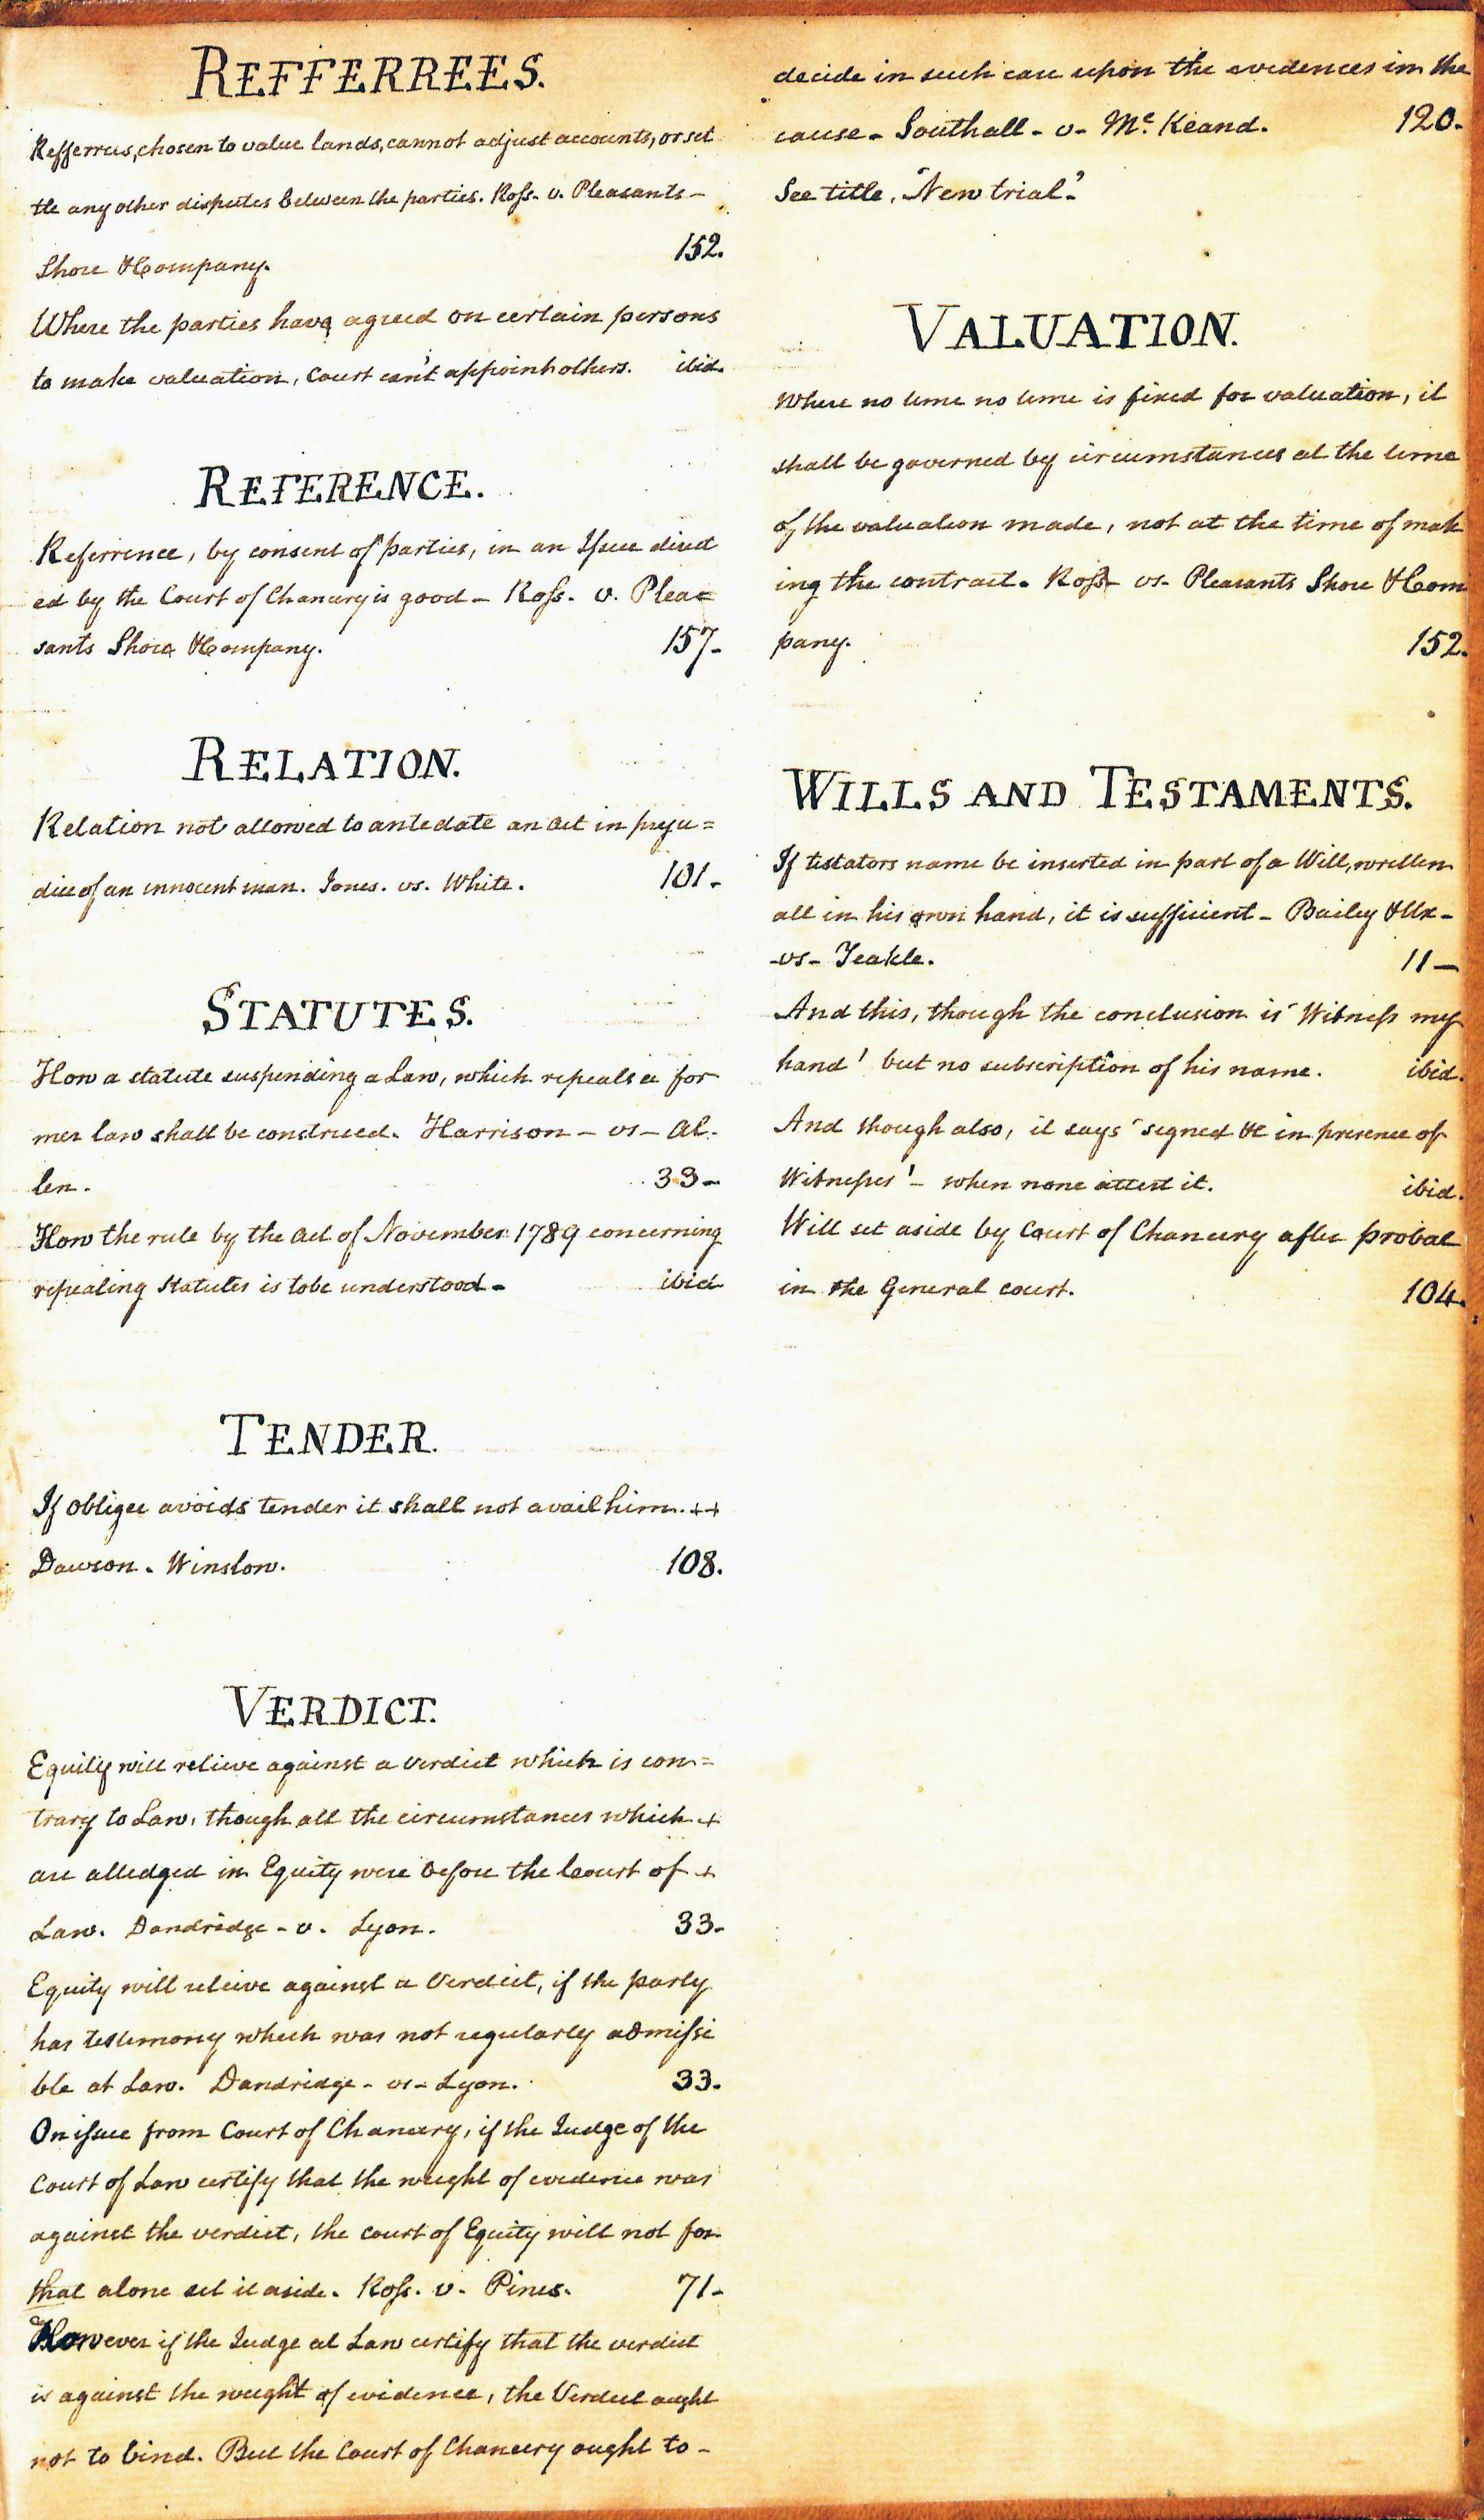 REFFERREES.
Refferrees, chosen to value lands, cannot adjust accounts, or set
tle any other disputes between the parties. Ross. v. Pleasants -
Shore & Company. 152.
Where the parties have agreed on certain persons
to make valuation, Court can't appoint others. ibid.
REFERENCE.
Referrence, by consent of parties, in an Issue direct
ed by the Court of Chancery is good - Ross. v. Plea=
sants Shore & Company. 157-
RELATION.
Relation not allowed to antedate an act in preju=
dice of an innocent man. Jones. vs. White. 101-
STATUTES.
How a statute suspending a Law, which repeals a for
mer law shall be construed. Harrison - vs - Al-
len. 33-
How the rule by the act of November 1789 concerning
repealing Statutes is to be understood - ibid
TENDER.
If obligee avoids tender it shall not avail him. ++
Dawson. Winslow. 108.
VERDICT.
Equity will relieve against a verdict which is con=
trary to Law, though all the circumstances which +
are alledged in Equity were before the Court of +
Law. Dandridge - v. Lyon. 33-
Equity will releive against a Verdict, if the party
has testimony which was not regularly admissi
ble at Law. Dandridge - vs - Lyon. 33.
On issue from Court of Chancery, if the Judge of the
Court of Law certify that the weight of evidence was
against the verdict, the court of Equity will not for
that alone set it aside. Ross. v. Pines. 71-
However if the Judge at Law certify that the verdict
is against the weight of evidence, the Verdict ought
not to bind. But the Court of Chancery ought to -
decide in such case upon the evidences in the
cause - Southall - v - Mc. Keand. 120.
See title, "New trial".
VALUATION.
Where no time no time is fixed for valuation, it
shall be governed by circumstances at the time
of the valuation made, not at the time of mak
ing the contract. Ross - vs. Pleasants Shore & Com
pany. 152.
WILLS AND TESTAMENTS.
If testators name be inserted in part of a Will, written
all in his own hand, it is sufficient - Bailey & Ux -
-vs- Teakle. 11-
And this, though the conclusion is 'Witness my
hand' but no subscription of his name. ibid.
And though also, it says 'signed &c in presence of
Witnesses' - when none attest it. ibid.
Will set aside by Court of Chancery after probat
in the General court. 104.